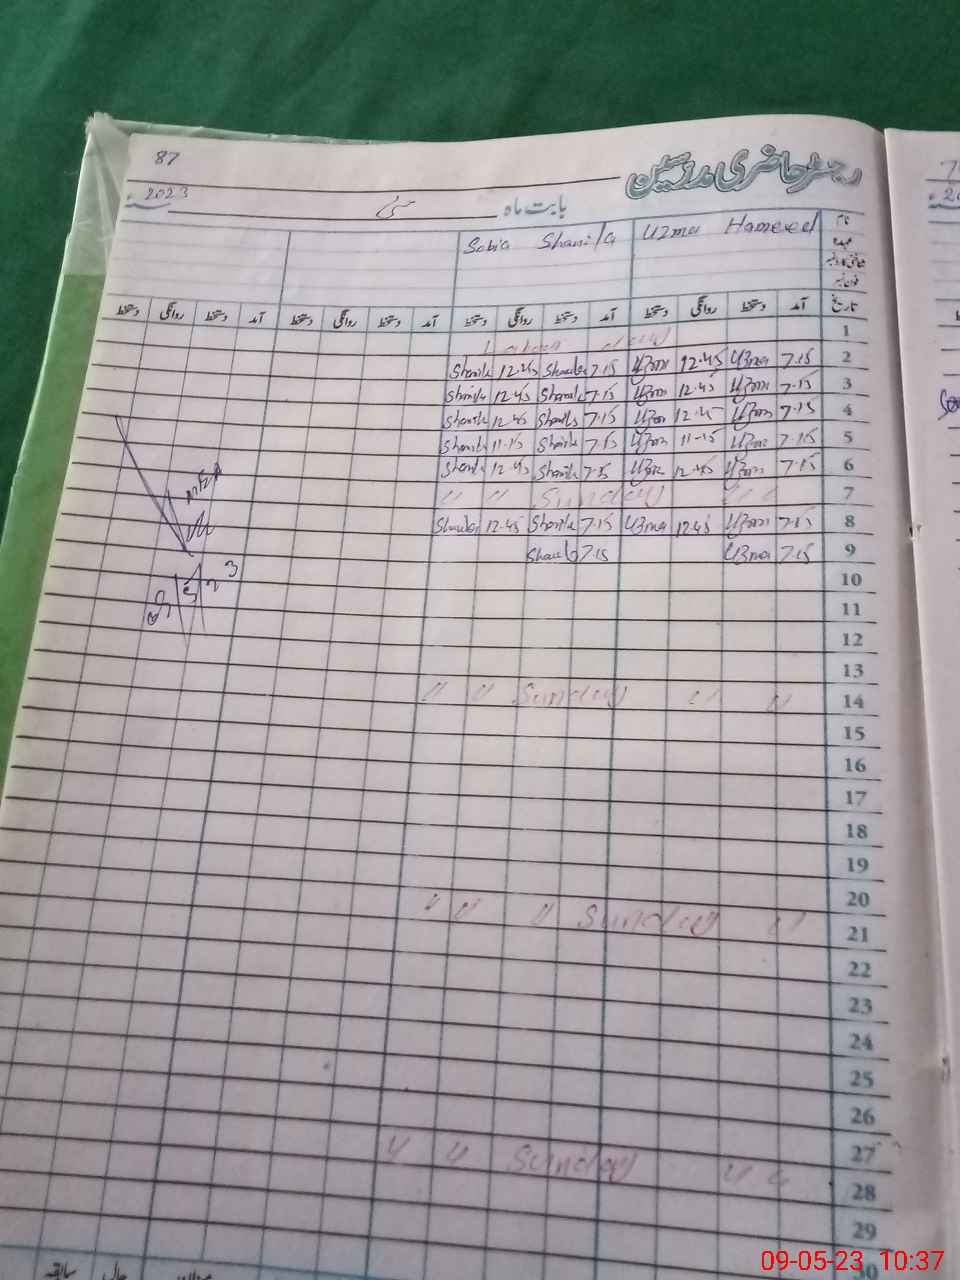 87
رجسٹر حاضری مدرسین
2023ء
بابت ماہ مئی
نام Uzma Hameed Sobia Shamila
عہدہ
شناختی کارڈ نمبر
فون نمبر
تاریخ آمد دستخط روانگی دستخط آمد دستخط روانگی دستخط آمد دستخط روانگی دستخط آمد دستخط روانگی دستخط
1 Labour day
2 7.15 Uzma 12.45 Uzma 7.15 Shamila 12.45 Shamila
3 7.15 Uzma 12.45 Uzma 7.15 Shamila 12.45 Shamila
4 7.15 Uzma 12.45 Uzma 7.15 Shamila 12.45 Shamila
5 7.15 Uzma 11-15 Uzma 7.15 Shamila 11.15 Shamila
6 7.15 Uzma 12.45 Uzma 7.15 Shamila 12.45 Shamila
7 " " Sunday " "
8 7.15 Uzma 12.45 Uzma 7.15 Shamila 12.45 Shamila
9 7.15 Uzma 7.15 Shamila
10
11
12
13
14 " " Sunday " "
15
16
17
18
19
20
21 " " " Sunday "
22
23
24
25
26
27
28 " " Sunday " "
29
30
میزان حالی سابقہ
7
09-05-23 10:37